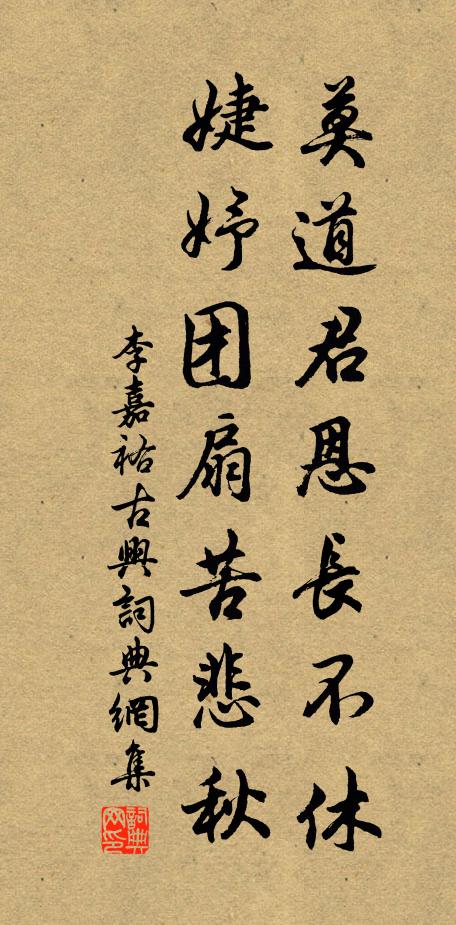 莫道君恩長不休
婕妤团扇苦悲秋
李嘉祐古興詞典網集
詞典网印